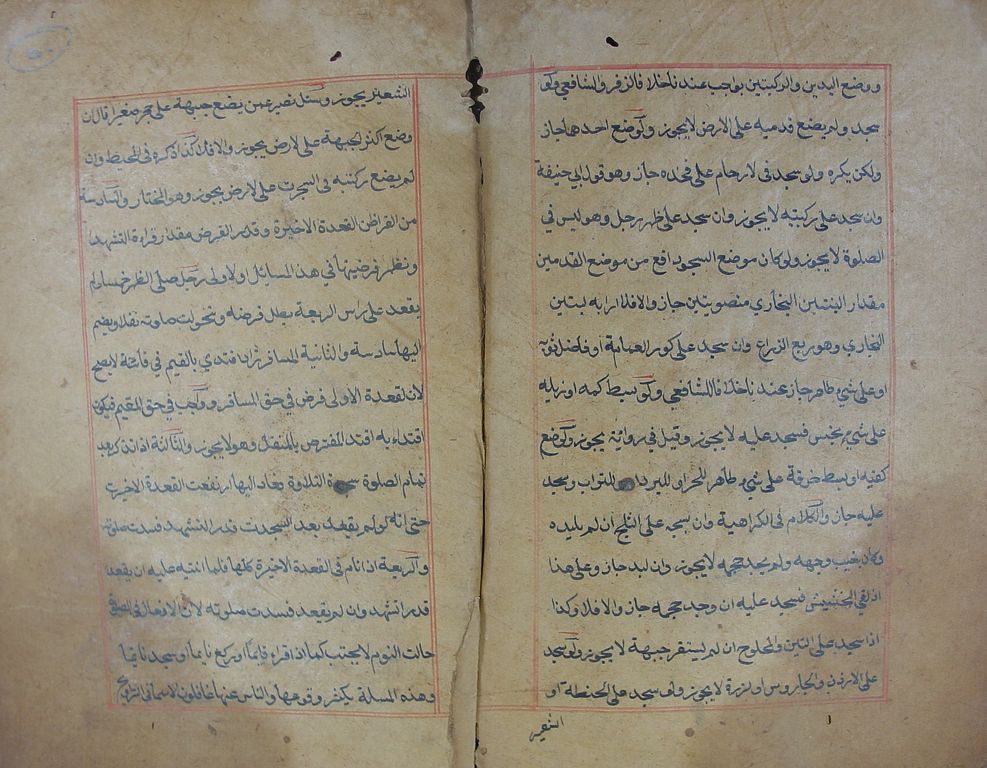 ووضع اليدين والركبتين بواجب عندنا خلافا لزفر والشافعي ولو
سجد ولم يضع قدميه على الارض لا يجوز ولو وضع احدهما جاز
ولكن يكره ولو سجد في الازحام على فخذه جاز وهو قول ابي حنيفة
وان سجد على ركبتيه لا يجوز وان سجد على ظهر رجل وهو ليس في
الصلوة لا يجوز ولو كان موضع السجود ارفع من موضع القدمين
مقدار البنتين البخاري منصوبتين جاز والافلا اراد به لبنتين
البخاري وهو ربع الذراع وان سجد على كور العمامة او فاضل ثوبه
او على شيء طاهر جاز عندنا خلافا للشافعي ولو بسط كمه او ذيله
على شيء نجس فسجد عليه لا يجوز وقيل في رواية يجوز ولو وضع
كفيه او بسط خرقة على شيء طاهر للحر او للبرد او للتراب وسجد
عليه جاز والكلام في الكراهية وان سجد على الثلج ان لم يلبده
وكان يغيب وجهه ولم يجد حجمه لا يجوز وان لبد جاز وعلى هذا
اذ لقي الحشيش فسجد عليه ان وجد حجمه جاز والافلا وكذا
اذا سجد على التبن والمحلوج ان لم يستقر جبهة لا يجوز ولو سجد
على الارذن والجاروس او لذرة لا يجوز ولو سجد على الحنطة او
الشعير
الشعير يجوز وسئل نصير عمن يضع جبهة على حجر صغير قال ان
وضع اكثر الجبهة على الارض يجوز والافلا كذا ذكره في المحيط وان
لم يضع ركبتيه في السجدت على الارض يجوز وهو المختار والسادسة
من الفرائض القعدة الاخيرة وقدر الفرض مقدار قراءة التشهد
ونظر فرضيتها في هذ المسائل اولاولى رجل صلى الظهر خمسا ولم
يقعد على راس الربعة بطل فرضه وتحولت صلوته نفلا ويضم
اليها سادسة والثانية المسافر اذا اقتدي بالمقيم في فائتة لا يصح
لان لقعدة الاولى فرض في حق المسافر وواجب في حق المقيم فيكون
اقتداء به اقتد المفترض بالمتنفل وهو لا يجوز والثالثة اذا تذكر بعد
تمام الصلوة سجدة التلاوة فعاد اليها ارتفعت القعدة الاخيرة
حتى انه لو لم يقعد بعد السجدت قدر التشهد فسدت صلوته
والربعية اذا نام في القعدة الاخيرة كلها فلما انتبه عليه ان يقعد
قدر تشهد وان لم يقعد فسدت صلوته لان الافعال في الصلوة
حالت النوم لا يحتب كما اذا قراء قايما او ركع نايما او سجد نايما
وهذه المسلة يكثر وقوعها والناس عنها غافلون لاسيما في التراويح